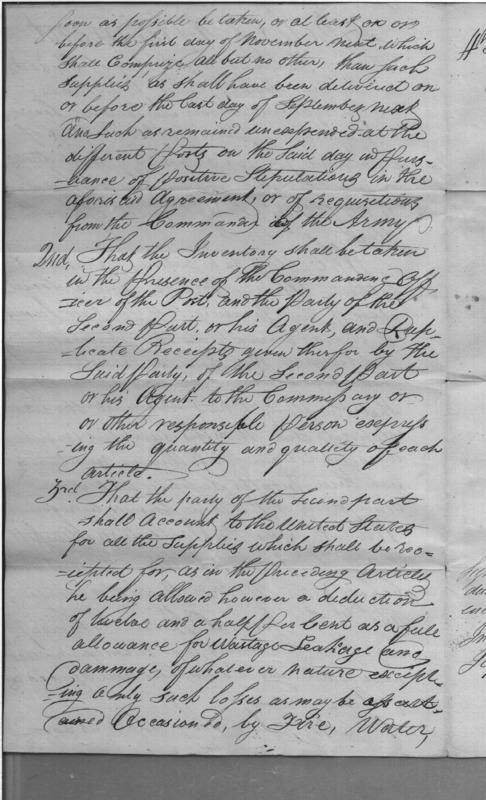 soon as possible be taken, or at least on or
before the first day of November next which
shall Comprize all but no other, than such
Supplies as shall have been delivered on
or before the last day of September next
and such as remained unexpended at the
different Posts on the Said day in Purs-
-uance of Positive Stipulations in the
aforesaid Agreement, or of Requisitions
from the Commander of the Army
2nd, That the Inventory shall be taken
in the Presence of the Commanding Off-
-icer of the Post, and the Party of the
Second Part, or his Agent, and Dup-
-licate Receipts given therfor by the
Said Party, of the Second Part
or his Agent to the Commissary or
or other responsible Person express
-ing the quantity and quality of each
Article.
3rd. That the party of the Second part
shall Account to the United States
for all the Supplies which shall be rec-
-eipted for, as in the Preceding Article
he being allowed however a deduction
of twelve and a half Per Cent as a full
allowance for Wastage Leakage and
dammage, of whatever nature except-
-ing only such losses as may be
Occasiond, by Fire, Water,